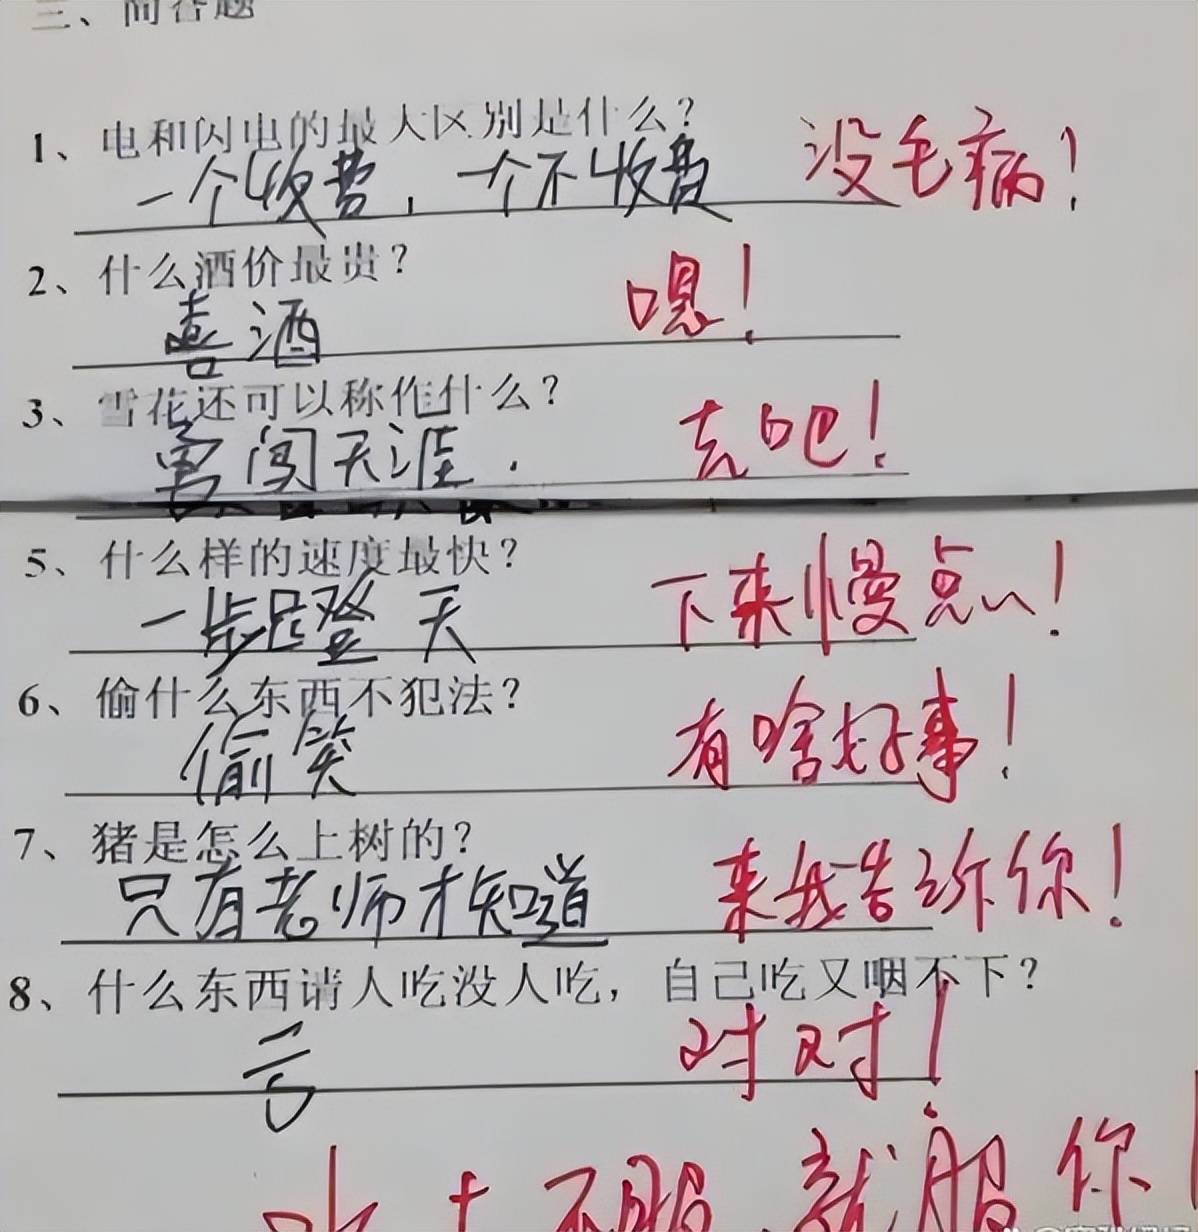 三、问答题
1、电和闪电的最大区别是什么?
一个收费,一个不收费 没毛病!
2、什么酒价最贵?
喜酒 嗯!
3、雪花还可以称作什么?
勇闯天涯. 去吧!
5、什么样的速度最快?
一步登天 下来慢点儿!
6、偷什么东西不犯法?
偷笑 有啥好事!
7、猪是怎么上树的?
只有老师才知道 来我告诉你!
8、什么东西请人吃没人吃,自己吃又咽不下?
亏 对对!
水土不服就服你!